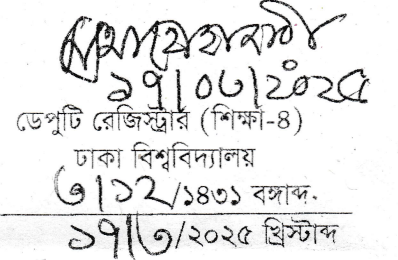 ১৭/০৩/২০২৫
ডেপুটি রেজিস্ট্রার (শিক্ষা-৪)
ঢাকা বিশ্ববিদ্যালয়
৩/১২/১৪৩১ বঙ্গাব্দ.
১৭/৩/২০২৫ খ্রিস্টাব্দ